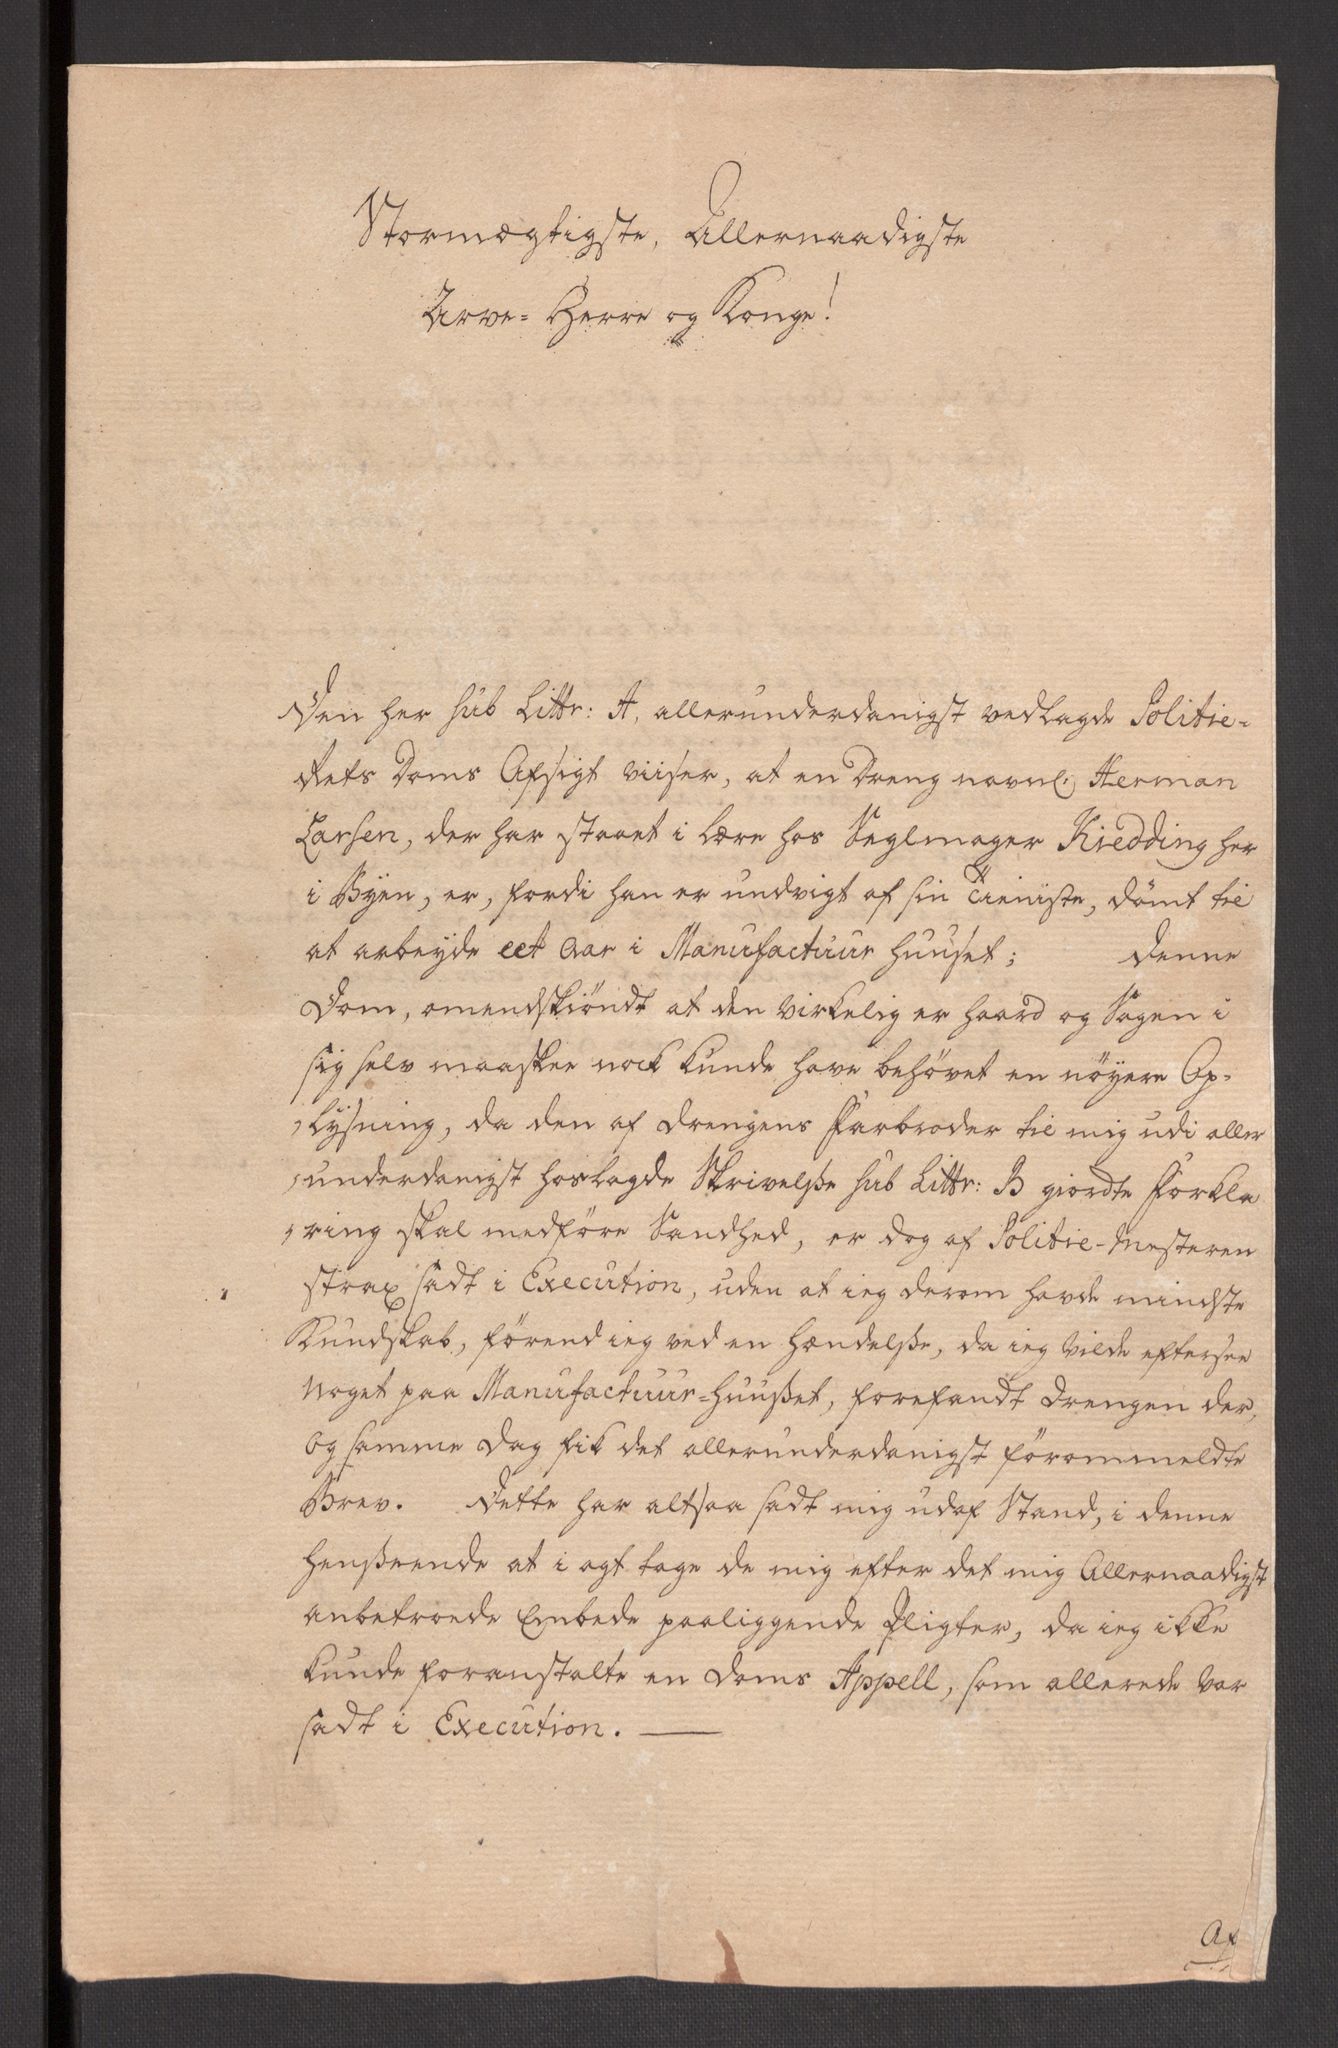 Stormægtigste, Allernaadigste
Arve- Herre og Konge!
Den her sub Littr: A, allerunderdanigst vedlagde Politie-
Rets Doms Afsigt viiser, at en Dreng navnl. Herman
Larsen, der har staaet i Lære hos Seglmager Kiedding her
i Byen, er, fordi han er undvigt af sin Tieniste, dömt til
at arbeyde eet Aar i Manufactuur huuset; Denne
Dom, omendskiöndt at den virkelig er haard og Sagen i
sig selv maaskee nock kunde have behövet en nöyere Op-
lysning, da den af Drengens Farbroder til mig udi aller
underdanigst hoslagde Skrivelße sub Littr: B giordte Forkla
ring skal medföre Sandhed, er dog af Politie-Mesteren
strax sadt i Execution, uden at ieg derom havde mindste
Kundskab, förend ieg ved en Hændelße, da ieg vilde eftersee
Noget paa Manufactuur-huußet, forefandt Drengen der,
og samme Dag fik det allerunderdanigst förommeldte
Brev. Dette har altsaa sadt mig udaf Stand, i denne
Henßeende at i agt tage de mig efter det mig Allernaadigst
anbetroede Embede paaliggende Pligter, da ieg ikke
kunde foranstalte en Doms Appell, som allerede var
sadt i Execution.
Af